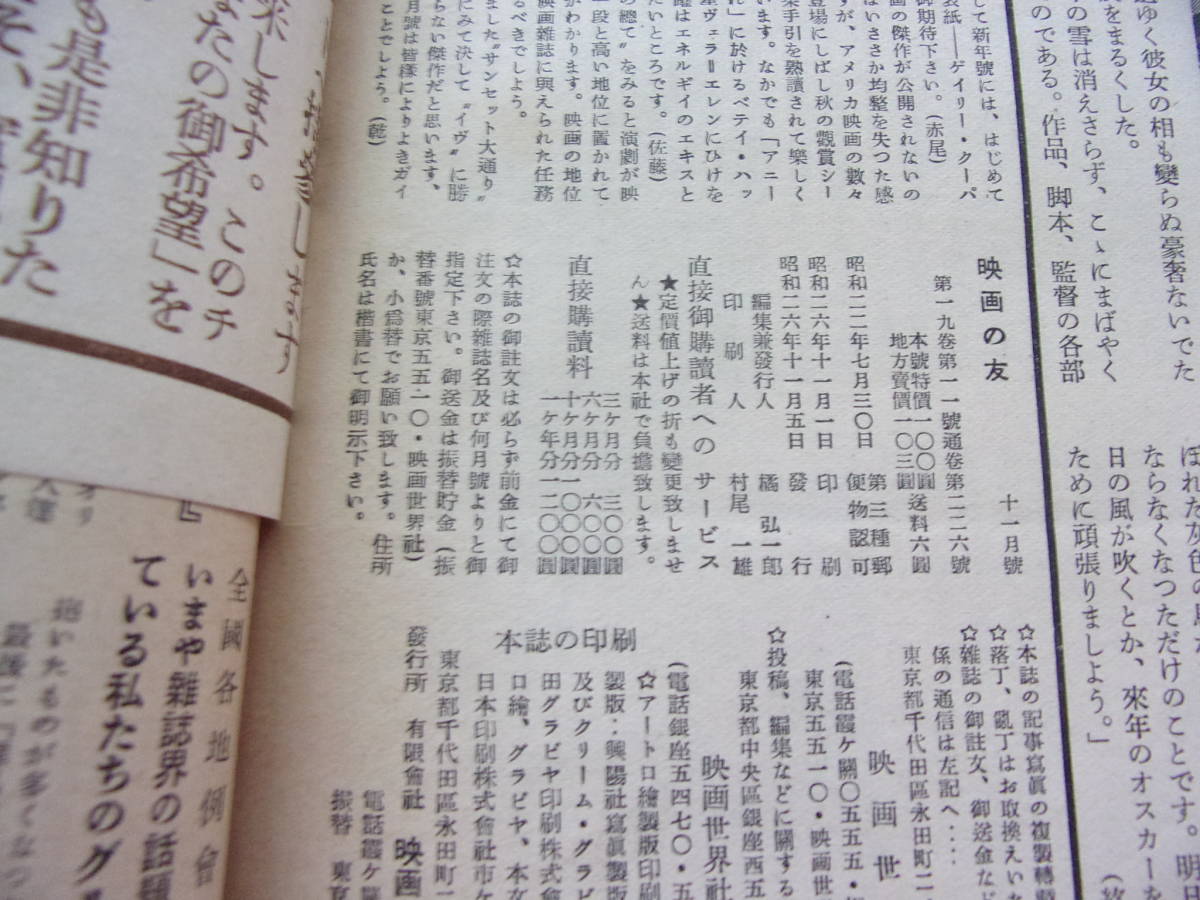 過ゆく彼女の相も變らぬ豪奢ないでた
をまるくした。
の雪は消えさらず、こゝにまばやく
のである。作品、脚本、監督の各部
ぼれた灰色の
ならなくなつただけのことです。明日
日の風が吹くとか、來年のオスカーを
ために頑張りましよう。」
して新年號には、はじめて
表紙――ゲイリー・クーパ
御期待下さい。(赤尾)
画の傑作が公開されないの
はいささか均整を失つた感
すが、アメリカ映画の數々
登場にしばし秋の觀賞シー
樂手引を熟讀されて樂しく
います。なかでも「アニー
れ」に於けるベテイ・ハッ
星ヴェラ＝エレンにひけを
躍はエネルギイのエキスと
たいところです。(佐藤)
の總て”をみると演劇が映
一段と高い地位に置かれて
がわかります。映画の地位
映画雜誌に與えられた任務
るべきでしよう。
ました“サンセット大通り”
にみて決して“イヴ”に勝
らない傑作だと思います、
月號は皆樣によりよきガイ
ことでしよう。(乾)
映画の友
十一月號
第一九卷第一一號通卷第二二六號
本號特價一〇〇圓送料六圓
地方賣價一〇三圓
昭和二二年七月三〇日 第三種郵便物認可
昭和二六年十一月一日 印刷
昭和二六年十一月五日 發行
編集兼發行人 橘弘一郎
印刷人 村尾一雄
直接御購讀者へのサービス
★定價値上げの折も變更致しませ
ん★送料は本社で負擔致します。
直接購讀料
三ヶ月分 三〇〇圓
六ヶ月分 六〇〇圓
十ヶ月分一〇〇〇圓
一ヶ年分一二〇〇圓
☆本誌の御註文は必らず前金にて御
注文の際雜誌名及び何月號よりと御
指定下さい。御送金は振替貯金(振
替番號東京五五一〇・映画世界社)
か、小爲替でお願い致します。住所
氏名は楷書にて御明示下さい。
☆本誌の記事寫眞の複製轉
☆落丁、亂丁はお取換えいた
☆雜誌の御註文、御送金など
係の通信は左記へ‥‥
東京都千代田區永田町二
映画世
(電話霞ケ關〇五五五・
東京五五一〇・映画世
☆投稿、編集などに關する
東京都中央區銀座西五
映画世界社
(電話銀座五四七〇・五
本誌の印刷
☆アートロ繪製版印刷
製版・興陽社寫眞製版
及びクリーム・グラビ
田グラビヤ印刷株式會
ロ繪、グラビヤ、本文
日本印刷株式會社市ケ
東京都千代田區永田町二
發行所 有限會社 映画
電話霞ケ關
振替 東京
します
來します。このチ
なたの御希望」を
も是非知りた
全國各地例會
いまや雜誌界の話題
ている私たちのグル
抱いたものが多くなっ